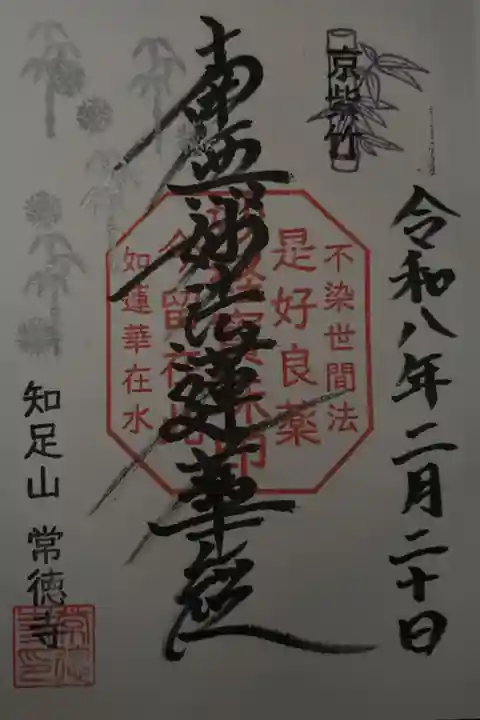 京紫竹
令和八年二月二十日
不染世間法
是好良薬
南無妙法蓮華経
今留在此
如蓮華在水
知足山 常徳寺